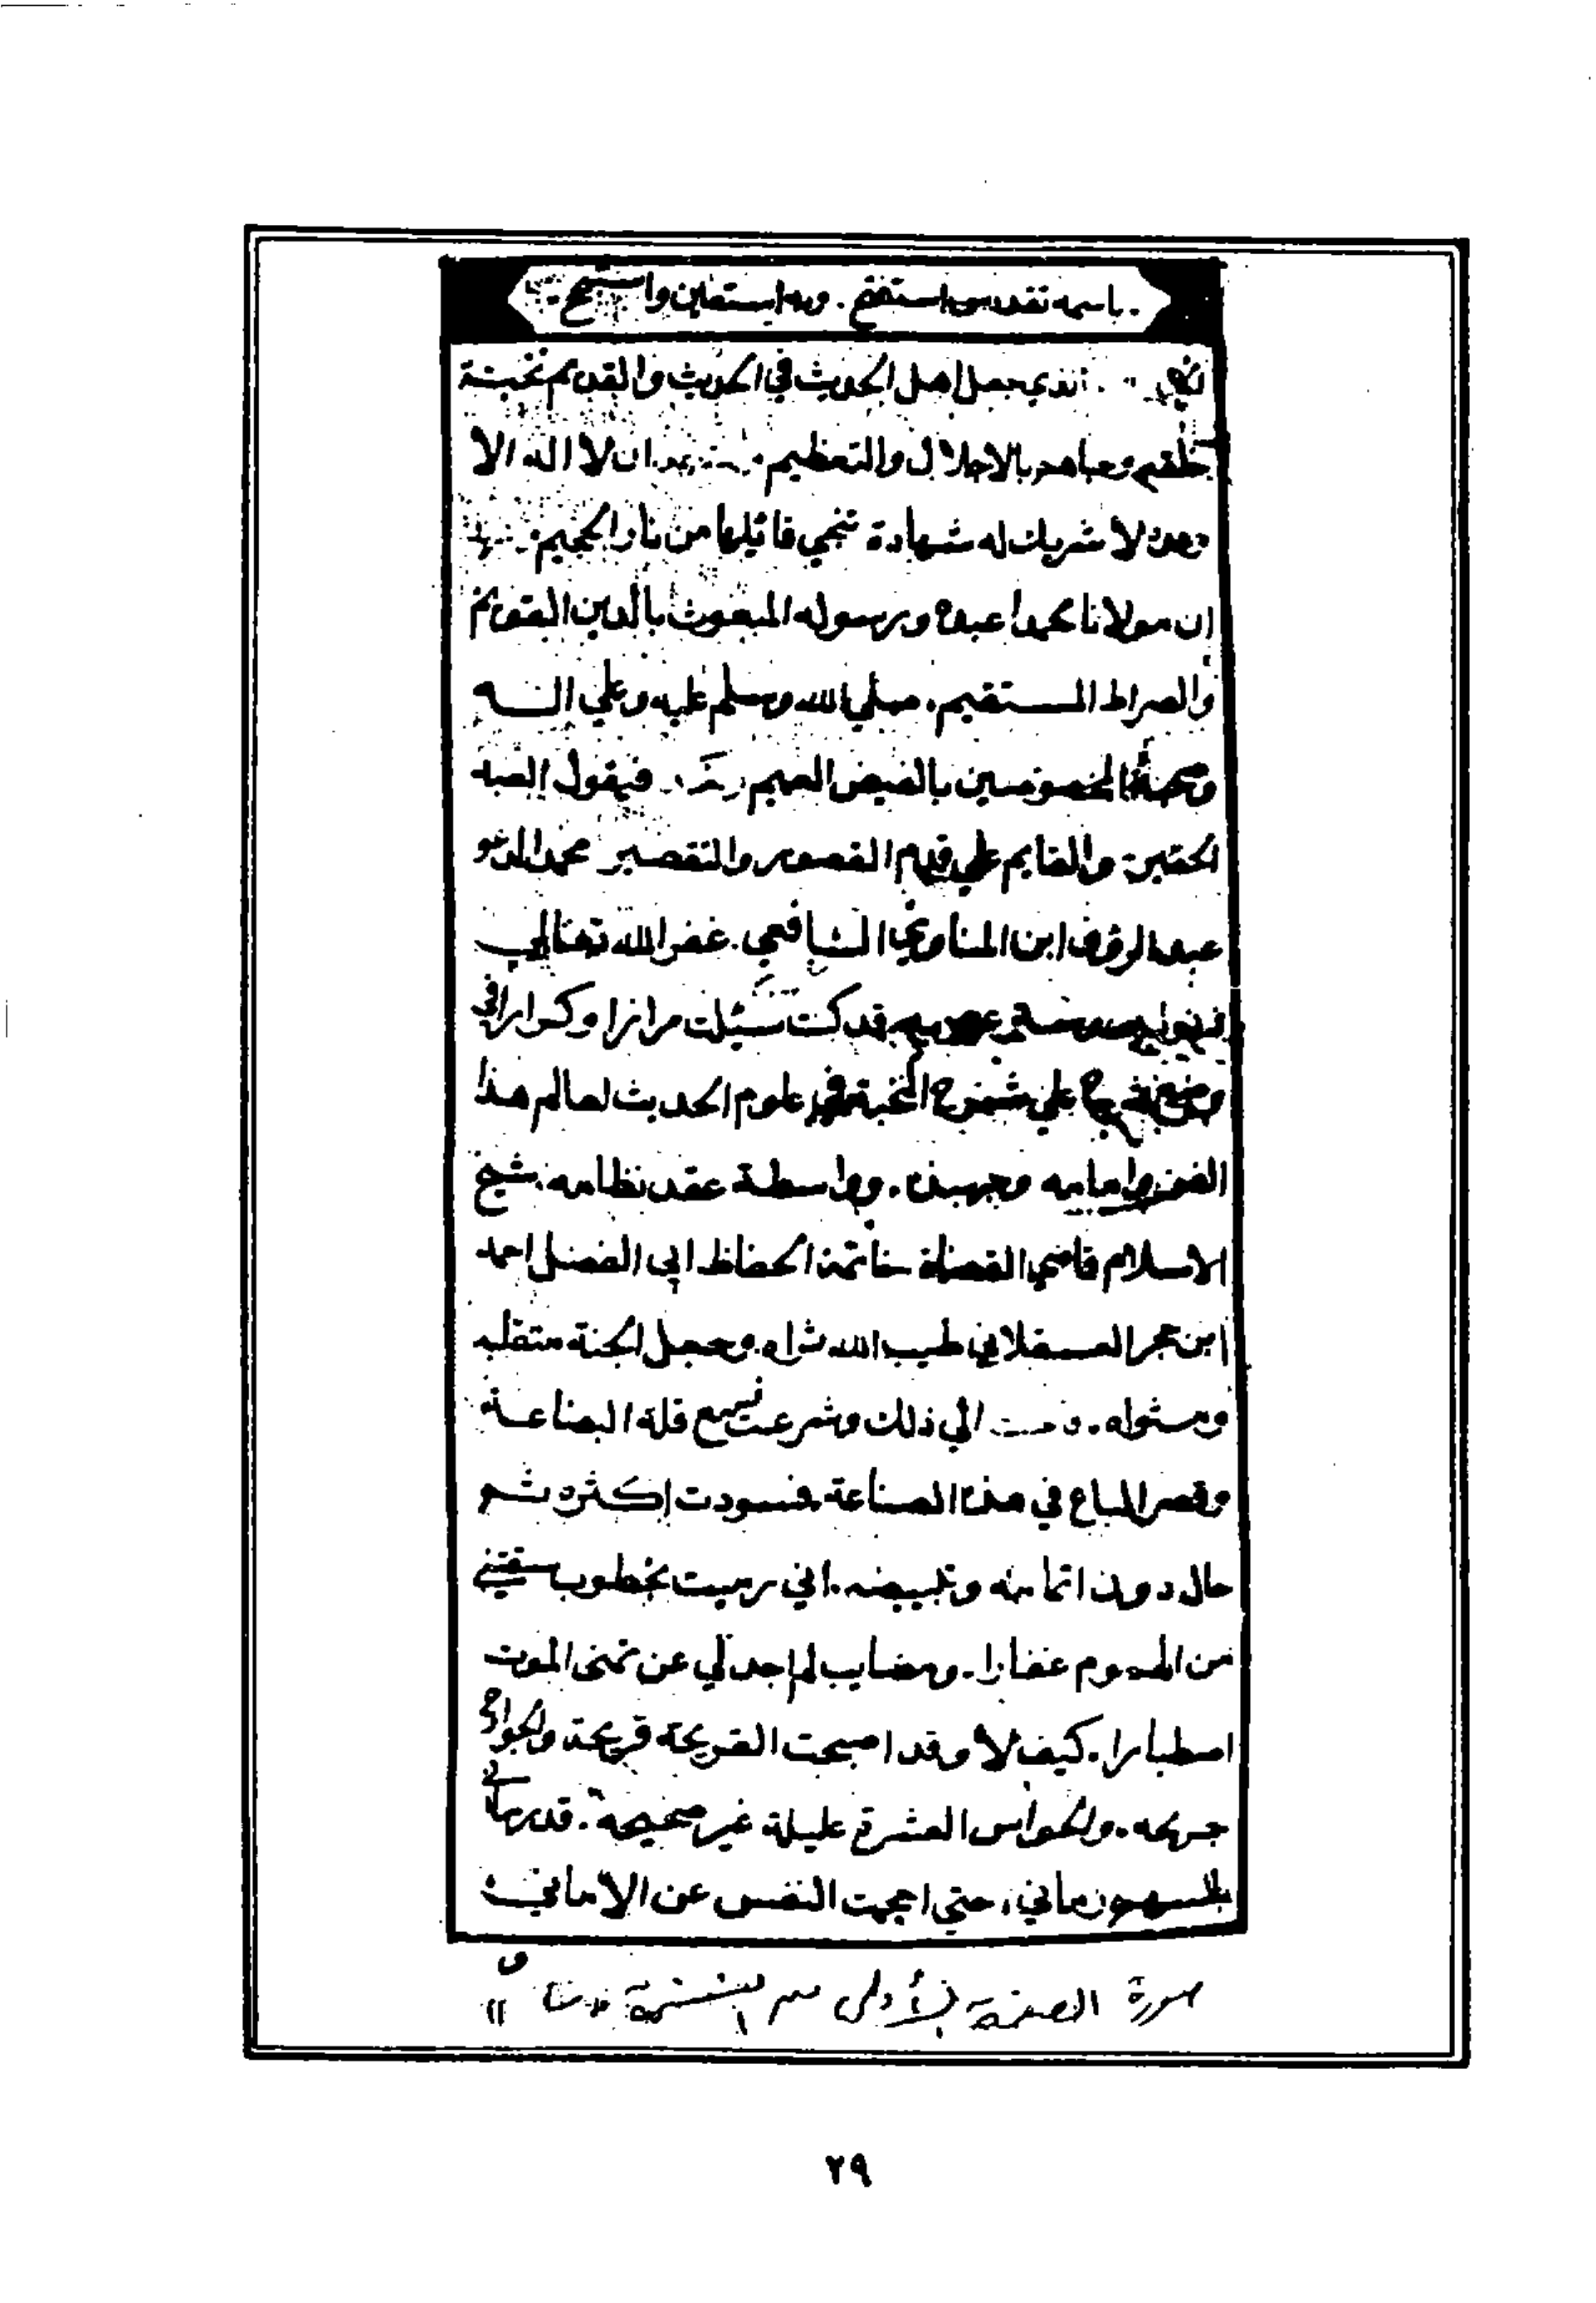 باسمه تقدس استفتح. وبه استعين واستنجح
الذي جعل اهل الحديث في الحديث والقديم نخبة
خلقه وحباهم بالاجلال والتعظيم ان لا اله الا
وحده لا شريك له شهادة تنجي قائلها من نار الجحيم
ان مولانا محمدا عبده ورسوله المبعوث بالدين القويم
والصراط المستقيم. صلي الله وسلم عليه وعلي اله
وصحبه المخصوصين بالفيض العميم فيقول العبد
الحقير. والقايم علي قدم القصور والتقصير محمد المدعو
عبد الرؤف ابن المناوي الشافعي. غفر الله تعالي
قد كنت سئلت مرارا وكرارا في
وضع علي شروح النخبة في علوم الحديث لعالم هذا
الفن وامامه وجهبذه. وواسطة عقد نظامه. شيخ
الاسلام قاضي القضاة خاتمة الحفاظ ابي الفضل احمد
ابن حجر العسقلاني طيب الله ثراه. وجعل الجنة متقلبه
ومثواه. الي ذلك وشرعت مع قلة البضاعة
وقصر الباع في هذه الصناعة. فسودت اكثره ثم
حال دون اتمامه وتبييضه. اني رميت بخطوب سقتني
من الهموم عقارا. ومصايب لم اجد لي عن تمني الموت
اصطبارا. كيف لا وقد اصبحت القريحة قريحة والجوارح
جريحه. والحواس العشرة عليلة غير صحيحة. قد رماني
زماني. حتي احجمت النفس عن الاماني
صورة الصفحة الأولى من النسخة
٢٩